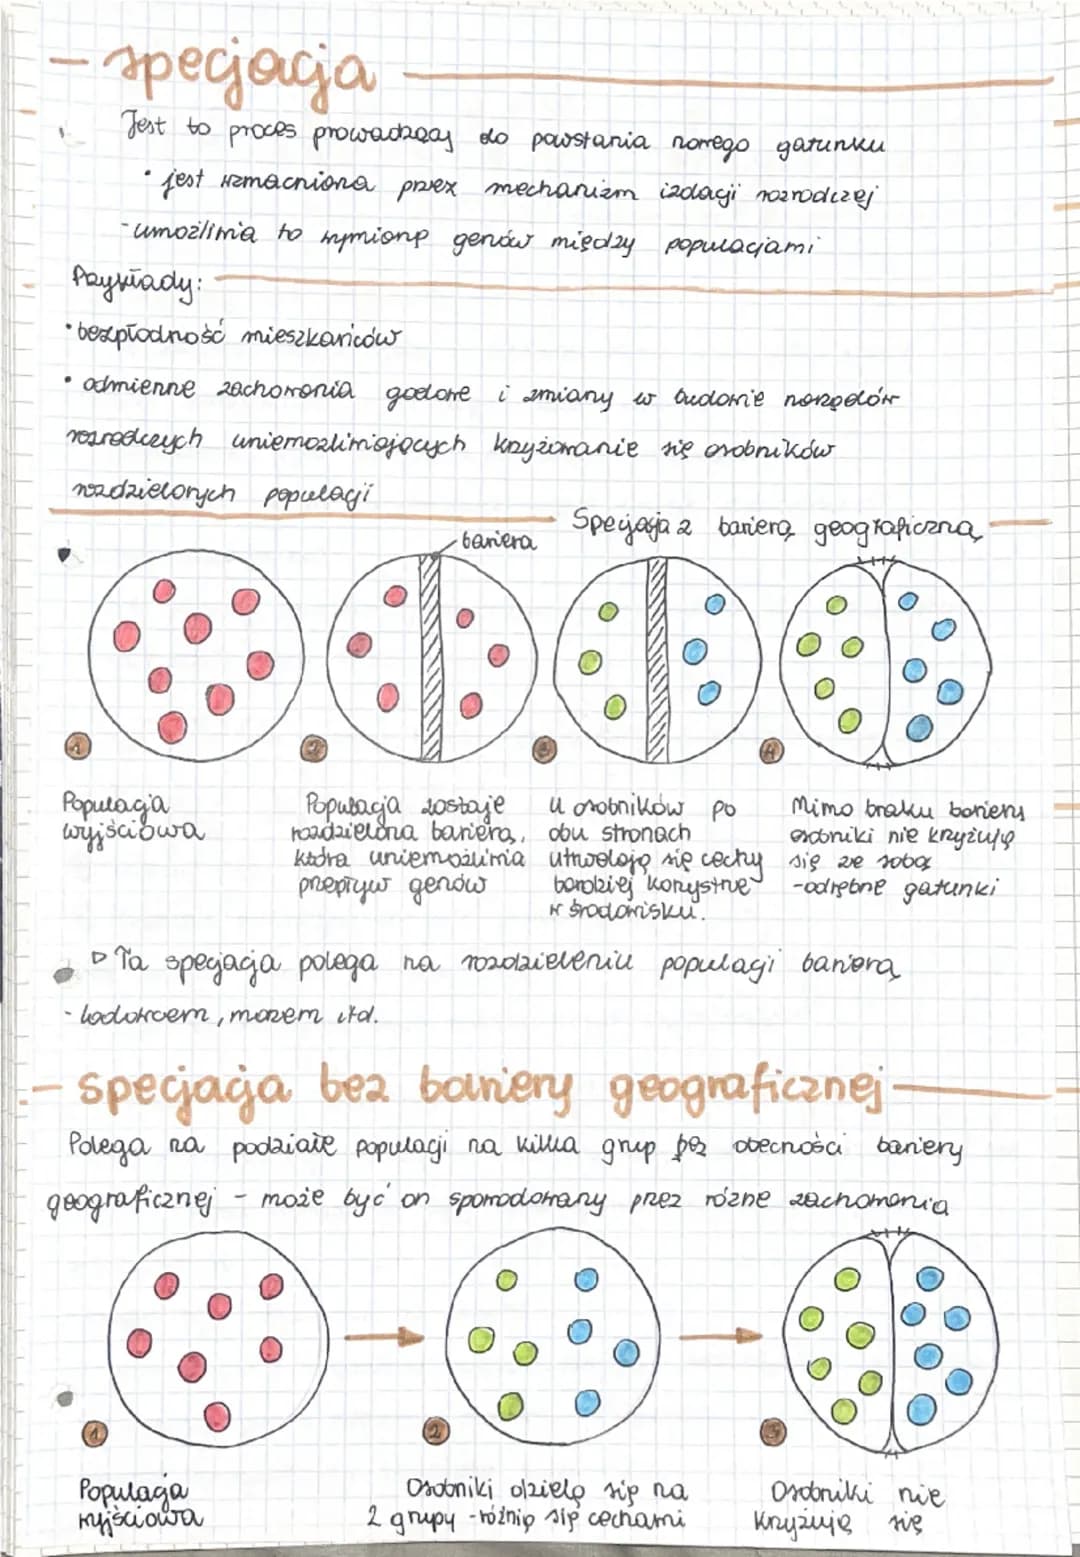 - specjacja
Jest to proces prowadzący do powstania nowego gatunku
• jest wzmacniana przez mechanizm izolacji rozrodczej
- umożliwia to wymianę genów między populacjami
Przykłady:
• bezpłodność mieszkańców
• odmienne zachowania godowe i zmiany w budowie narządów
rozrodczych uniemożliwiających krzyżowanie się osobników
rozdzielonych populacji
Specjacja z barierą geograficzną
bariera
1 2 3 4
Populacja
wyjściowa
Populacja zostaje
rozdzielona barierą,
która uniemożliwia
przepływ genów
u osobników po
obu stronach
utrwalają się cechy
bardziej korzystne
w środowisku.
Mimo braku bariery
osobniki nie krzyżują
się ze sobą
- odrębne gatunki
Ta specjacja polega na rozdzieleniu populacji barierą
- lodowcem, morzem itd.
- specjacja bez bariery geograficznej
Polega na podziale populacji na kilka grup bez obecności bariery
geograficznej - może być on spowodowany przez różne zachowania
1 2 3
Populacja
wyjściowa
Osobniki dzielą się na
2 grupy - różnią się cechami
Osobniki nie
krzyżują się